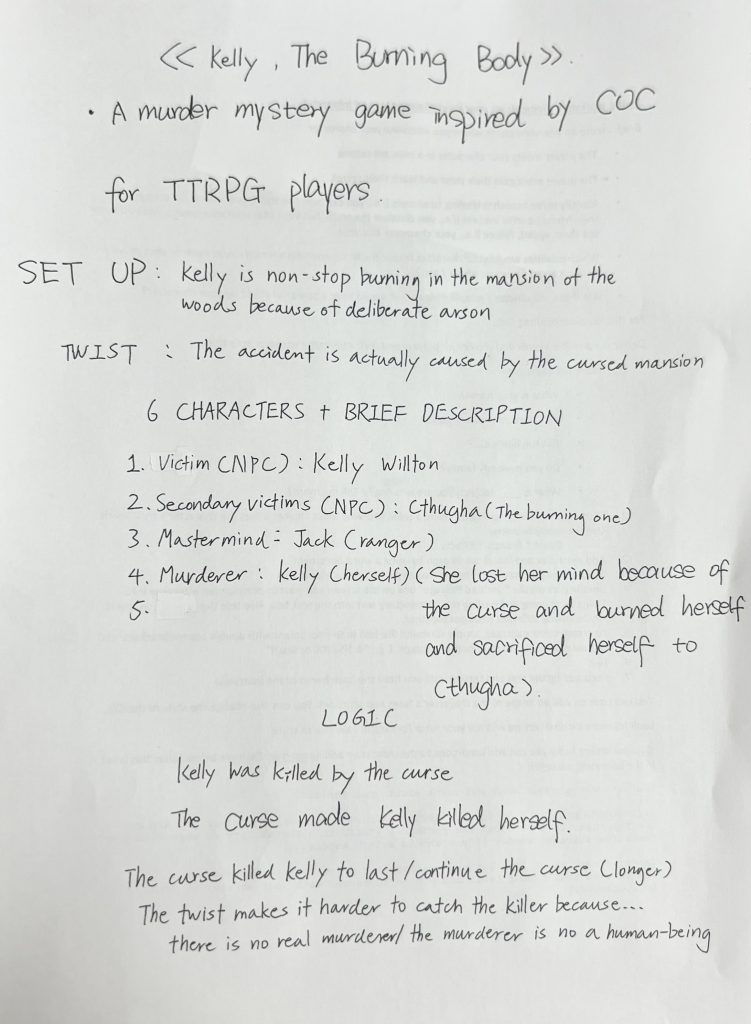 << Kelly, The Burning Body >>.
• A murder mystery game inspired by COC
for TTRPG players.
SET UP: Kelly is non-stop burning in the mansion of the
woods because of deliberate arson
TWIST : The accident is actually caused by the cursed mansion
6 CHARACTERS + BRIEF DESCRIPTION
1. Victim (NPC) : Kelly Willton
2. Secondary victims (NPC) : Cthugha (The burning one)
3. Mastermind : Jack (ranger)
4. Murderer : Kelly (herself) ( She lost her mind because of
5. the curse and burned herself
and sacrificed herself to
Cthugha).
LOGIC
Kelly was killed by the curse
The curse made Kelly killed herself.
The curse killed Kelly to last / continue the curse (longer)
The twist makes it harder to catch the killer because...
there is no real murderer/ the murderer is no a human-being